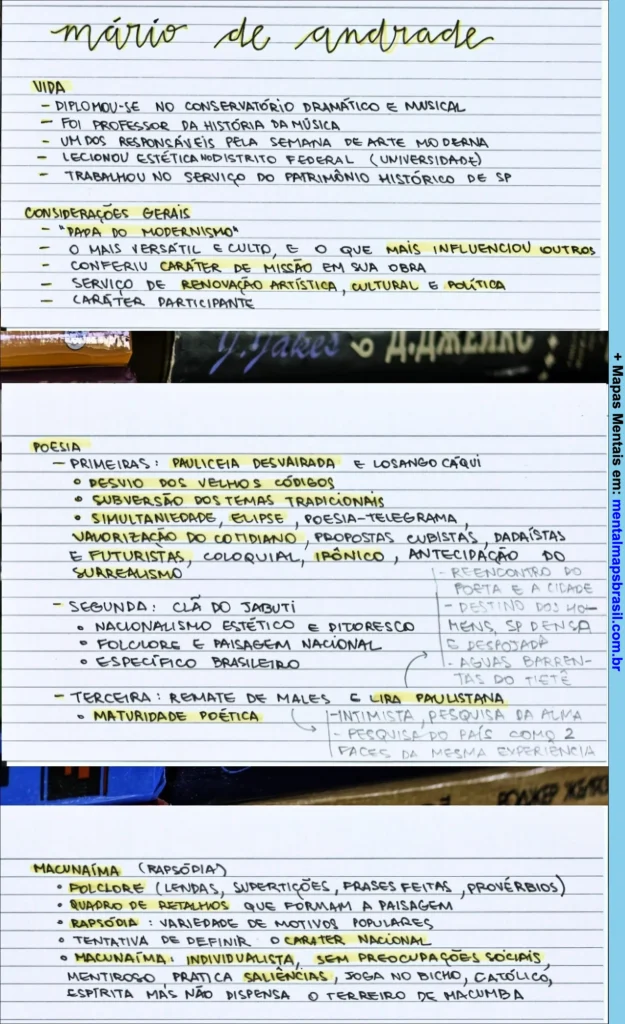 mário de andrade
VIDA
- DIPLOMOU-SE NO CONSERVATÓRIO DRAMÁTICO E MUSICAL
- FOI PROFESSOR DA HISTÓRIA DA MÚSICA
- UM DOS RESPONSÁVEIS PELA SEMANA DE ARTE MODERNA
- LECIONOU ESTÉTICA NO DISTRITO FEDERAL (UNIVERSIDADE)
- TRABALHOU NO SERVIÇO DO PATRIMÔNIO HISTÓRICO DE SP
CONSIDERAÇÕES GERAIS
- "PAPA DO MODERNISMO"
- O MAIS VERSÁTIL E CULTO, E O QUE MAIS INFLUENCIOU OUTROS
- CONFERIU CARÁTER DE MISSÃO EM SUA OBRA
- SERVIÇO DE RENOVAÇÃO ARTÍSTICA, CULTURAL E POLÍTICA
- CARÁTER PARTICIPANTE
Д.ДЖЕЙКС
POESIA
- PRIMEIRAS: PAULICEIA DESVAIRADA E LOSANGO CÁQUI
• DESVIO DOS VELHOS CÓDIGOS
• SUBVERSÃO DOS TEMAS TRADICIONAIS
• SIMULTANIEDADE, ELIPSE, POESIA-TELEGRAMA,
VALORIZAÇÃO DO COTIDIANO, PROPOSTAS CUBISTAS, DADAÍSTAS
E FUTURISTAS, COLOQUIAL, IRÔNICO, ANTECIPAÇÃO DO
SURREALISMO
- REENCONTRO DO
POETA E A CIDADE
- DESTINO DOS HO-
MENS, SP DENSA
E DESPOJADA
- ÁGUAS BARREN-
TAS DO TIETÊ
- SEGUNDA: CLÃ DO JABUTI
• NACIONALISMO ESTÉTICO E PITORESCO
• FOLCLORE E PAISAGEM NACIONAL
• ESPECÍFICO BRASILEIRO
- TERCEIRA: REMATE DE MALES E LIRA PAULISTANA
• MATURIDADE POÉTICA
- INTIMISTA, PESQUISA DA ALMA
- PESQUISA DO PAÍS COMO 2
FACES DA MESMA EXPERIÊNCIA
MACUNAÍMA (RAPSÓDIA)
• FOLCLORE (LENDAS, SUPERTIÇÕES, FRASES FEITAS, PROVÉRBIOS)
• QUADRO DE RETALHOS QUE FORMAM A PAISAGEM
• RAPSÓDIA: VARIEDADE DE MOTIVOS POPULARES
• TENTATIVA DE DEFINIR O CARÁTER NACIONAL
• MACUNAÍMA: INDIVIDUALISTA, SEM PREOCUPAÇÕES SOCIAIS,
MENTIROSO PRATICA SALIÊNCIAS, JOGA NO BICHO, CATÓLICO,
ESPÍRITA MAS NÃO DISPENSA O TERREIRO DE MACUMBA
+ Mapas Mentais em: mentalmapsbrasil.com.br